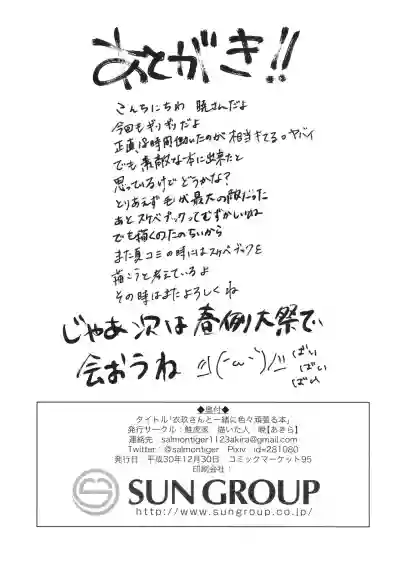 あとがき!!
こんちにちわ 暁さんだよ
今回もギリギリだよ
正直18時間働いたのが相当キてる。ヤバイ
でも素敵な本に出来たと
思っているけどどうかな?
とりあえず毛が最大の敵だった
あとスケベブックってむずかしいね
でも描くのたのちいから
また夏コミの時にはスケベブックを
描こうと考えているよ
その時はまたよろしくね
じゃあ次は春例大祭で
会おうね
ばい
ばい
ばい
◆奥付◆
タイトル「衣玖さんと一緒に色々頑張る本」
発行サークル:触虎派 描いた人 暁【あきら】
連絡先 salmontiger1123akira@gmail.com
Twitter:@salmontiger Pixiv id=281080
発行日 平成30年12月30日 コミックマーケット95
印刷会社:
SUN GROUP
http://www.sungroup.co.jp/